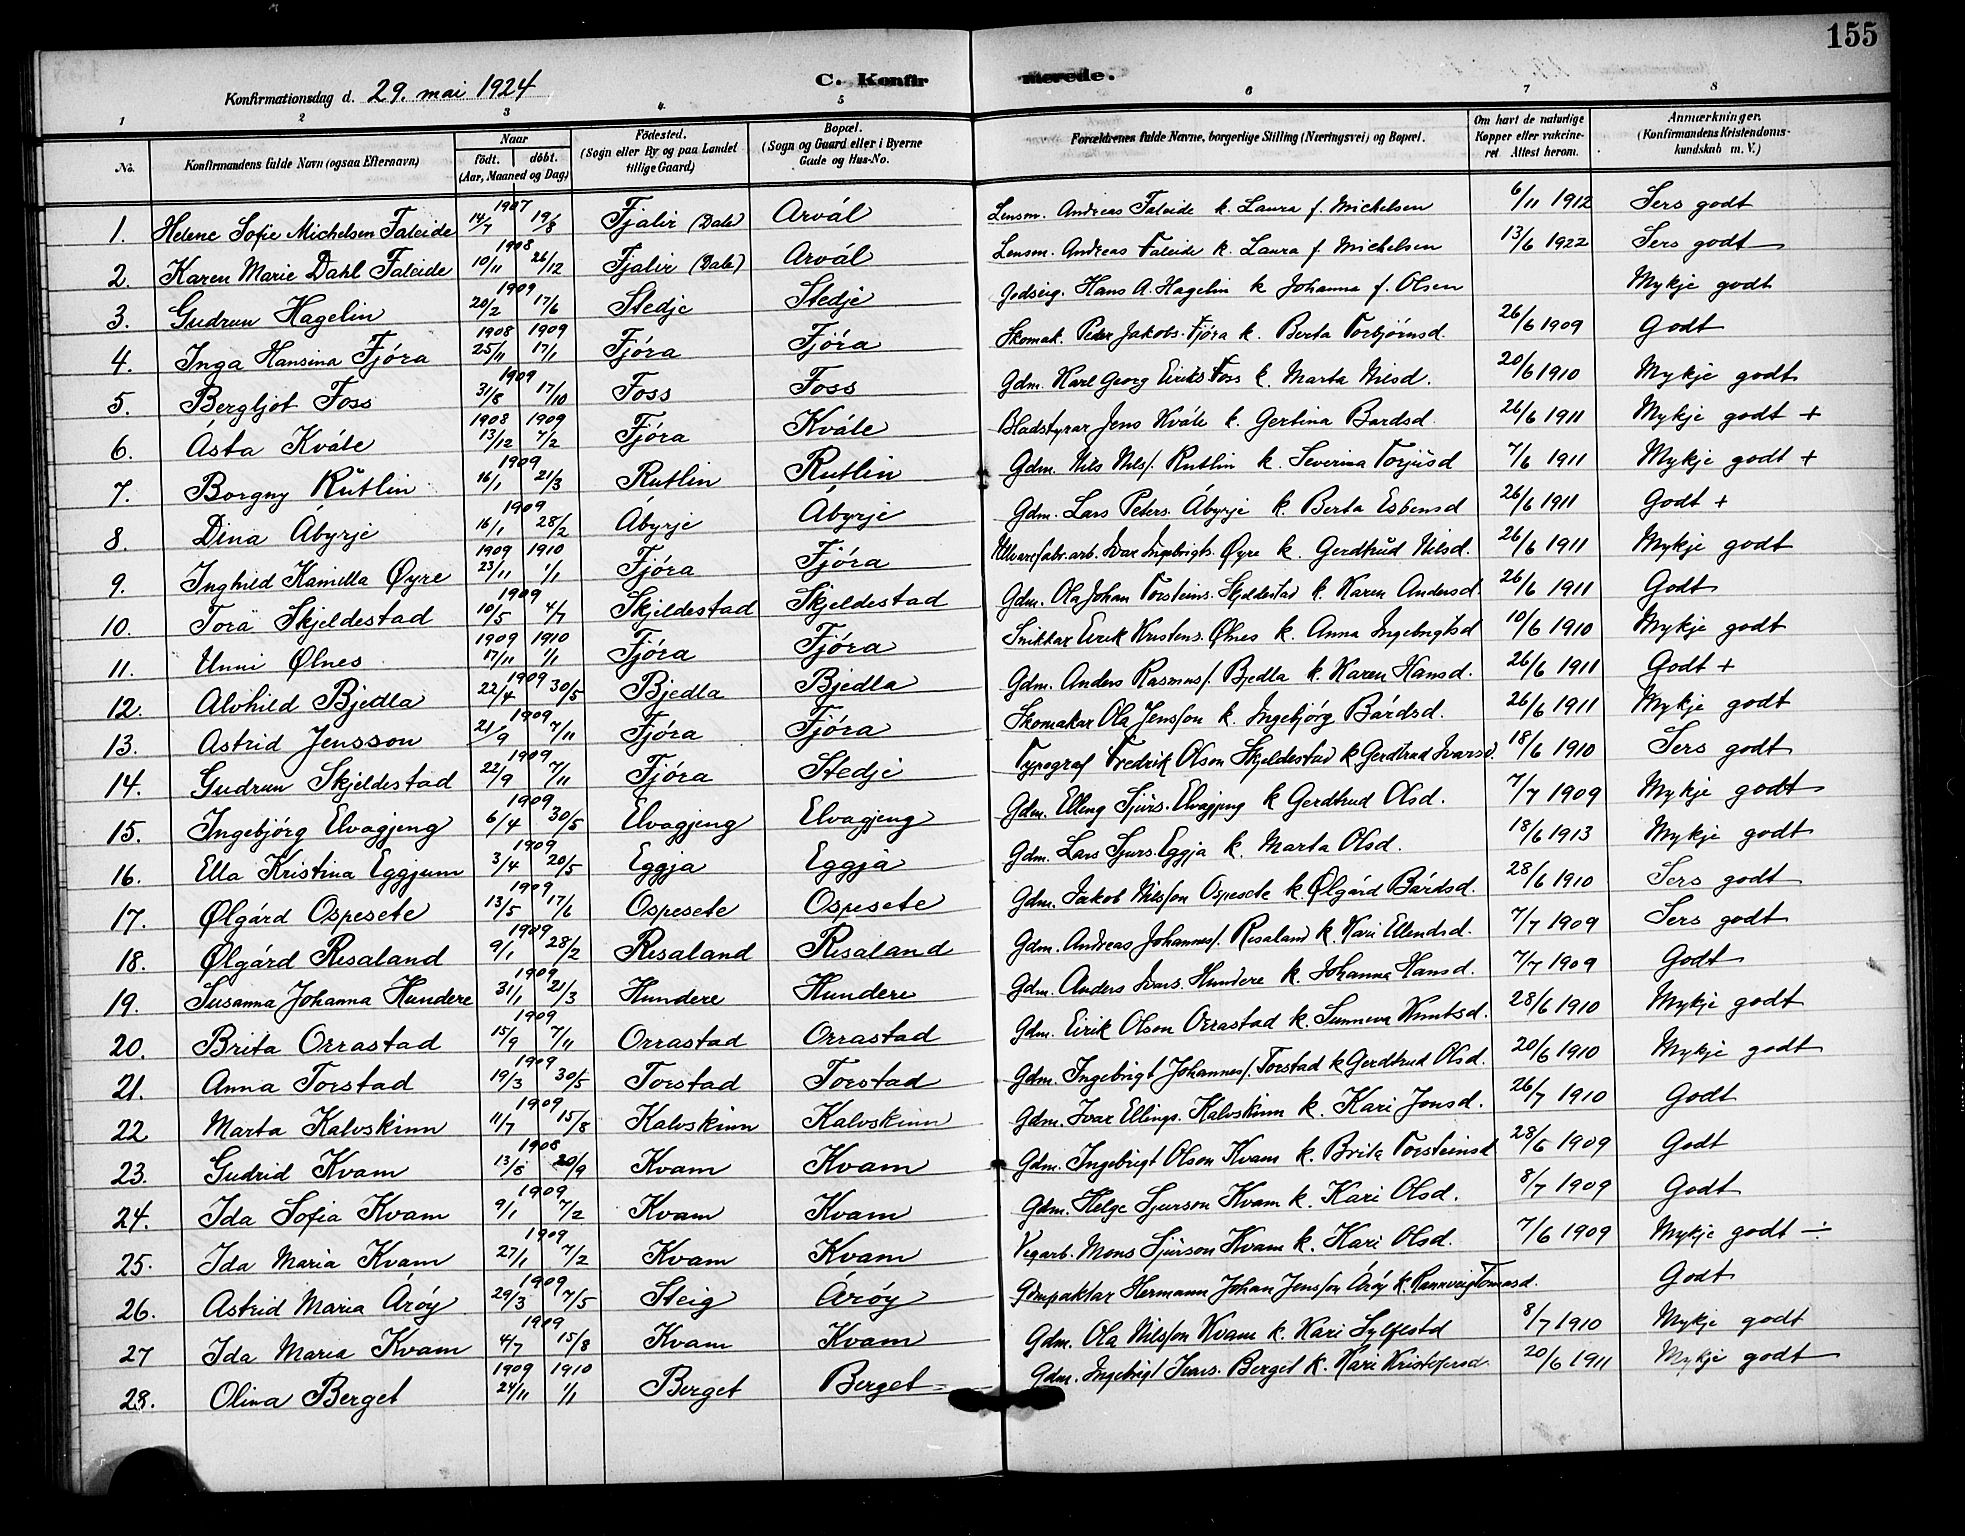 155
C. Konfirmerede.
Konfirmationsdag d. 29. mai 1924
1 2 3 4 5 6 7 8
No. | Konfirmandens fulde Navn (ogsaa Efternavn) | Naar födt. döbt. (Aar, Maaned og Dag) | Födested. (Sogn eller By og paa Landet tillige Gaard) | Bopæl. (Sogn og Gaard eller i Byerne Gade og Hus-No. | Forældrenes fulde Navne, borgerlige Stilling (Næringsvei) og Bopæl. | Om havt de naturlige Kopper eller vakcineret. Attest herom. | Anmærkninger. (Konfirmandens Kristendomskundskab m. V.)
1. Helene Sofie Michelsen Faleide 1907 14/7 19/8 Fjalir (Dale) Arvál Lensm. Andreas Faleide k. Laura f. Michelsen 6/11 1912 Sers godt
2. Karen Marie Dahl Faleide 1908 10/11 26/12 Fjalir (Dale) Arvál Lensm. Andreas Faleide k. Laura f. Michelsen 13/6 1922 Sers godt
3. Gudrun Hagelin 1909 20/2 17/6 Stedje Stedje Jodseig. Hans A. Hagelin k Johanna f. Olsen Mykje godt
4. Inga Hansina Fjóra 1908 1909 25/11 17/1 Fjóra Fjóra Skomak. Peder Jakobs. Fjóra k. Berta Torbjörnsd. 26/6 1909 Godt
5. Bergljot Foss 1909 31/8 17/10 Foss Foss Gdm. Karl Georg Eiriks Foss k. Marta Nilsd. 20/6 1910 Mykje godt
6. Ásta Kvále 1908 1909 13/12 7/2 Fjóra Kvále Bladstyrar Jens Kvále k. Gertina Bardsd. 26/6 1911 Mykje godt +
7. Borgny Rutlin 1909 16/1 21/3 Rutlin Rutlin Gdm. Nils Nilsf. Rutlin k. Severina Torjusd 7/6 1911 Mykje godt +
8. Dina Ábyrje 1909 16/1 28/2 Ábyrje Ábyrje Gdm. Lars Peters. Ábyrje k. Berta Esbensd 26/6 1911 Godt +
9. Inghild Kamilla Øyre 1909 1910 23/11 1/1 Fjóra Fjóra Ullvarefabr.arb. Ivar Ingebrigts. Øyre k. Gerdtrud Nilsd. 26/6 1911 Mykje godt
10. Tora Skjeldestad 1909 10/5 4/7 Skjeldestad Skjeldestad Gdm. Ola Johan Torsteins. Skjeldestad k. Karen Andersd 26/6 1911 Godt
11. Unni Ølnes 1909 1910 17/11 1/1 Fjóra Fjóra Snikkar Eirik Kristens. Ølnes k. Anna Ingebrigtsd 10/6 1910 Mykje godt
12. Alvhild Bjedla 1909 22/4 30/5 Bjedla Bjedla Gdm. Anders Rasmusf. Bjedla k. Karen Hansd. 26/6 1911 Godt +
13. Astrid Jensson 1909 21/9 7/11 Fjóra Fjóra Skomakar Ola Jensson k. Ingebjørg Bárdsd. 26/6 1911 Mykje godt
14. Gudrun Skjeldestad 1909 22/9 7/11 Fjóra Stedje Typograf Fredrik Olson Skjeldestad k Gerdtrud Ivarsd. 18/6 1910 Sers godt
15. Ingebjörg Elvagjeng 1909 6/4 30/5 Elvagjeng Elvagjeng Gdm. Elling Sjurs. Elvagjeng k Gerdtrud Olsd. 7/7 1909 Mykje godt
16. Ella Kristina Eggjum 1909 3/4 20/5 Eggja Eggja Gdm. Lars Sjurs. Eggja k. Marta Olsd. 18/6 1913 Mykje godt
17. Ølgárd Ospesete 1909 13/5 17/6 Ospesete Ospesete Gdm. Jakob Nilsson Ospesete k Ølgárd Bárdsd. 28/6 1910 Sers godt
18. Ølgárd Risaland 1909 9/1 28/2 Risaland Risaland Gdm. Andreas Johannesf. Risaland k. Kari Ellendsd. 7/7 1909 Sers godt
19. Susanna Johanna Hundere 1909 31/1 21/3 Hundere Hundere Gdm. Anders Ivars. Hundere k. Johanna Hansd. 7/7 1909 Godt
20. Brita Orrastad 1909 15/9 7/11 Orrastad Orrastad Gdm. Eirik Olson Orrastad k. Sunneva Knutsd. 28/6 1910 Mykje godt
21. Anna Torstad 1909 19/3 30/5 Torstad Torstad Gdm. Ingebrigt Johannesf. Torstad k Gerdtrud Olsd. 20/6 1910 Mykje godt
22 Marta Kalvskinn 1909 11/7 15/8 Kalvskinn Kalvskinn Gdm. Ivar Ellings. Kalvskinn k. Kari Jonsd. 26/7 1910 Godt
23. Gudrid Kvam 1908 13/8 20/9 Kvam Kvam Gdm. Ingebrigt Olson Kvam k. Brita Torsteinsd 28/6 1909 Godt
24. Ida Sofia Kvam 1909 9/1 7/2 Kvam Kvam Gdm. Helge Sjurson Kvam k. Kari Olsd. 8/7 1909 Godt
25. Ida Maria Kvam 1909 27/1 7/2 Kvam Kvam Vegarb. Mons Sjurson Kvam k. Kari Olsd. 7/6 1909 Mykje godt ÷
26. Astrid Maria Áróy 1909 29/3 7/5 Steig Áróy Gdmpaktar Hermann Johan Jensson Áróy k. Rannveig Tomasd. Godt
27 Ida Maria Kvam 1909 4/7 15/8 Kvam Kvam Gdm. Ola Nilsson Kvam k. Kari Sylfestd 8/7 1910 Mykje godt
28. Olina Berget 1909 1910 24/11 1/1 Berget Berget Gdm. Ingebrigt Ivars. Berget k. Kari Kristofersd. 20/6 1911 Mykje godt